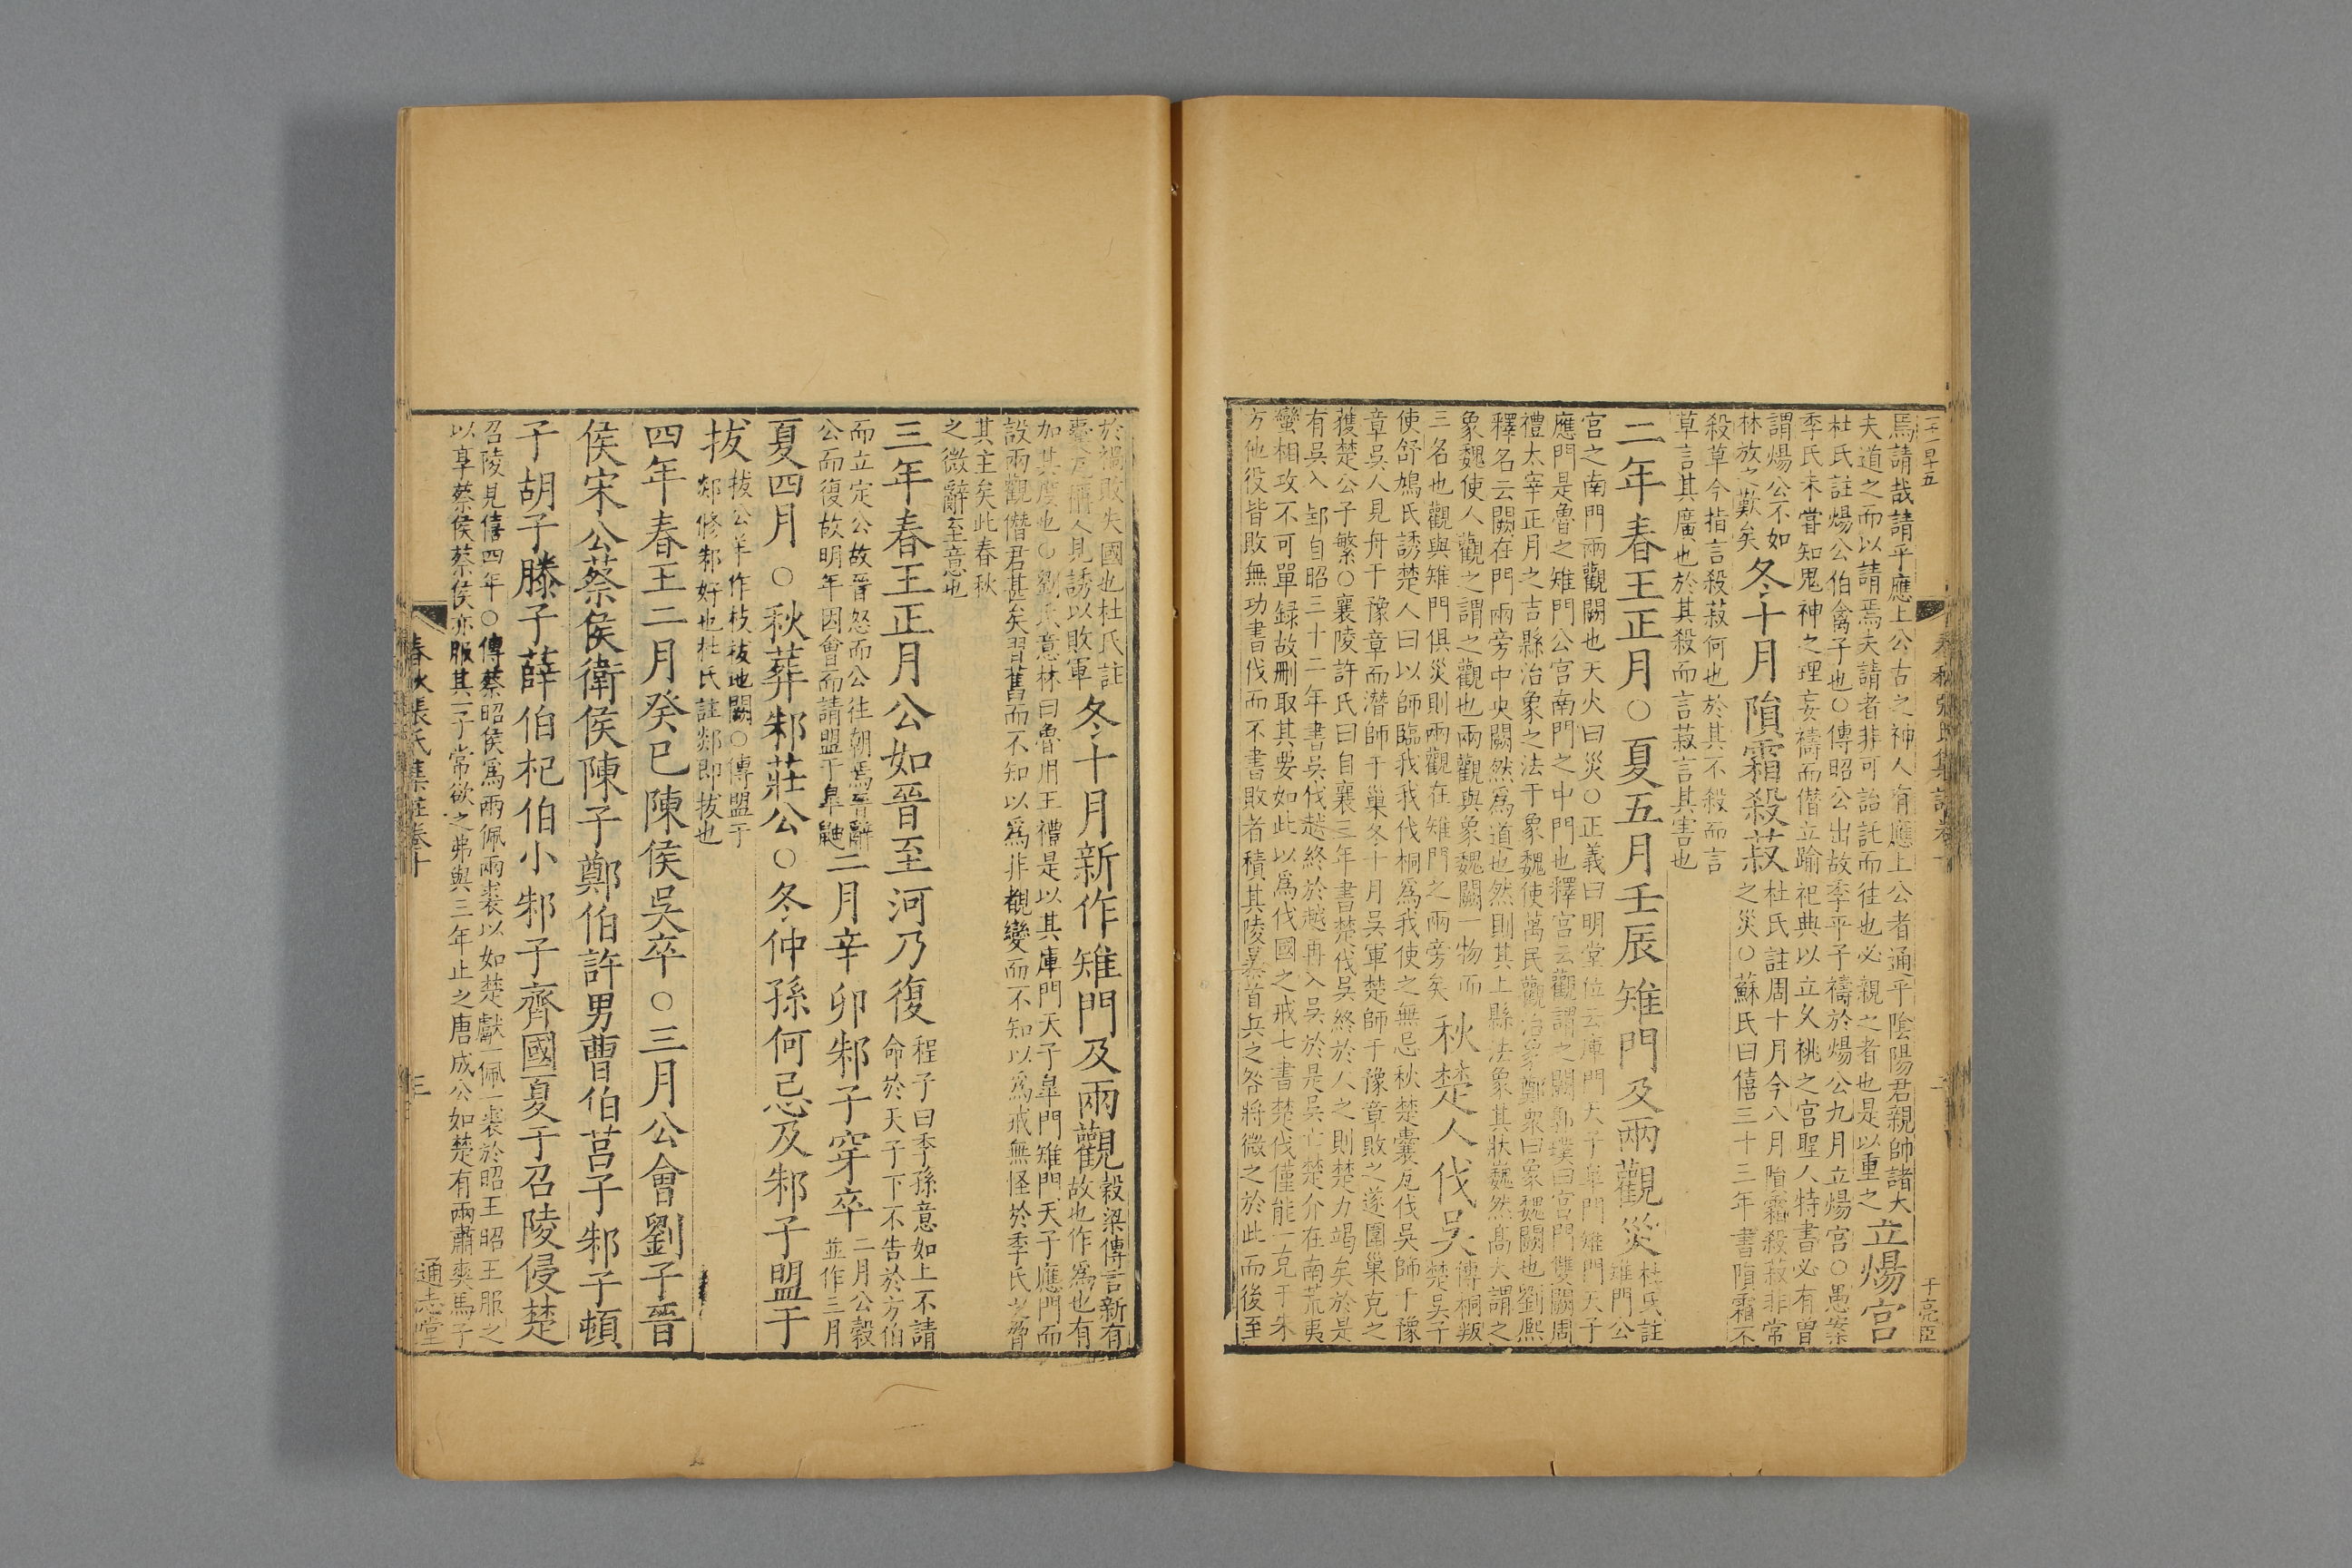 焉請哉請乎應上公古之神人有應上公者通乎陰陽君親帥諸大
夫道之而以請焉夫請者非可詒託而往也必親之者也是以重之
立煬宮
杜氏註煬公伯禽子也○傳昭公出故季平子禱於煬公九月立煬宮○愚案
季氏未嘗知鬼神之理妄禱而僭立踰祀典以立久祧之宮聖人特書必有曽
謂煬公不如
林放之歎矣
冬十月隕霜殺菽
杜氏註周十月今八月隕霜殺菽非常
之災○蘇氏曰僖三十三年書隕霜不
殺草今指言殺菽何也於其不殺而言
草言其廣也於其殺而言菽言其害也
二年春王正月○夏五月壬辰雉門及兩觀災
杜氏註
雉門公
宮之南門兩觀闕也天火曰災○正義曰明堂位云庫門天子皐門雉門天子
應門是魯之雉門公宮南門之中門也釋宮云觀謂之闕郭璞曰宮門雙闕周
禮太宰正月之吉縣治象之法于象魏使萬民觀治象鄭衆曰象魏闕也劉熈
釋名云闕在門兩旁中央闕然爲道也然則其上縣法象其狀巍然髙大謂之
象魏使人觀之謂之觀也兩觀與象魏闕一物而
三名也觀與雉門俱災則兩觀在雉門之兩旁矣
秋楚人伐吳
傳桐叛
楚吳子
使舒鳩氏誘楚人曰以師臨我我伐桐爲我使之無忌秋楚囊瓦伐吳師于豫
章吳人見舟于豫章而潛師于巢冬十月吳軍楚師于豫章敗之遂圍巢克之
獲楚公子繁○襄陵許氏曰自襄三年書楚伐吳終於人之則楚力竭矣於是
有吳入郢自昭三十二年書吳伐越終於越再入吳於是吳亡楚介在南荒夷
蠻相攻不可單録故刪取其要如此以爲伐國之戒七書楚伐僅能一克于朱
方他役皆敗無功書伐而不書敗者積其陵暴首兵之咎將微之於此而後至
春秋張氏集註卷十
二
于亮臣
於禍敗失國也杜氏註
囊瓦稱人見誘以敗軍
冬十月新作雉門及兩觀
穀梁傳言新有
故也作爲也有
加其度也○劉氏意林曰魯用王禮是以其庫門天子皐門雉門天子應門而
設兩觀僭君甚矣習舊而不知以爲非覩變而不知以爲戒無怪於季氏之脅
其主矣此春秋
之微辭至意也
三年春王正月公如晉至河乃復
程子曰季孫意如上不請
命於天子下不告於方伯
而立定公故晉怒而公往朝焉晉辭
公而復故明年因會而請盟于皐鼬
二月辛卯邾子穿卒
二月公穀
並作三月
夏四月○秋葬邾莊公○冬仲孫何忌及邾子盟于
拔
拔公羊作枝祓地闕○傳盟于
郯修邾好也杜氏註郯即拔也
四年春王二月癸巳陳侯吳卒○三月公會劉子晉
侯宋公蔡侯衛侯陳子鄭伯許男曹伯莒子邾子頓
子胡子滕子薛伯杞伯小邾子齊國夏于召陵侵楚
召陵見僖四年○傳蔡昭侯爲兩佩兩裘以如楚獻一佩一裘於昭王昭王服之
以享蔡侯蔡侯亦服其一子常欲之弗與三年止之唐成公如楚有兩肅爽馬子
春秋張氏集註卷十
三
通志堂